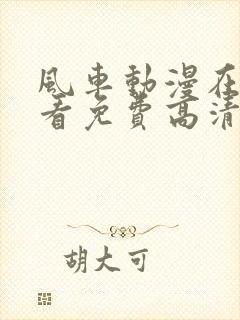 風車動漫在
看免費高清
胡大可